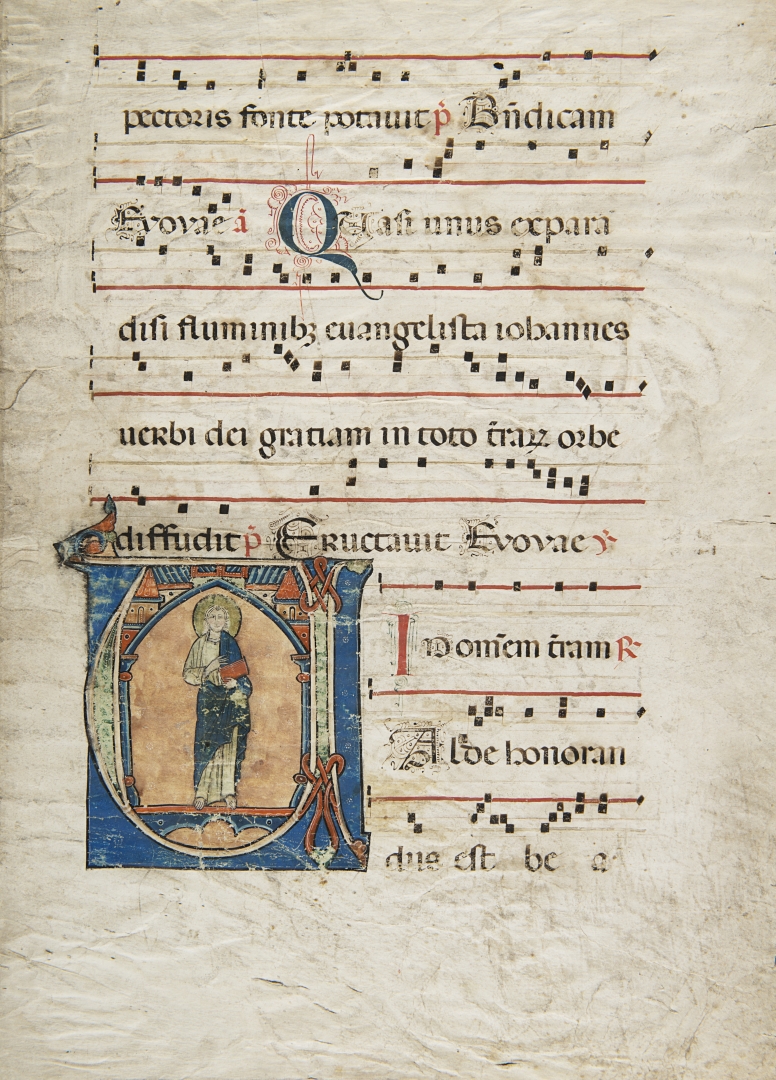 pectoris fonte potauit p̄ Bn̄dicam
Evovae ā QUasi unus expara
disi fluminibꝫ euangelista iohannes
uerbi dei gratiam in toto t̄raꝝ orbe
diffudit p̄ Eructauit Evovae ℣
IN om̄em t̄ram ℟
UAlde honoran
dus est be a